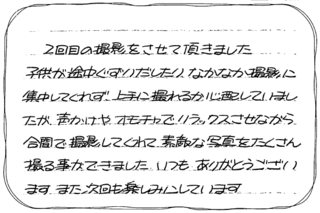 2回目の撮影をさせて頂きました
子供が途中ぐずりだしたり、なかなか撮影に
集中してくれず、上手に撮れるか心配していまし
たが、声かけや、オモチャで、リラックスさせながら
合間で撮影してくれて、素敵な写真をたくさん
撮る事ができました。いつも、ありがとうござい
ます。また次回も楽しみにしています